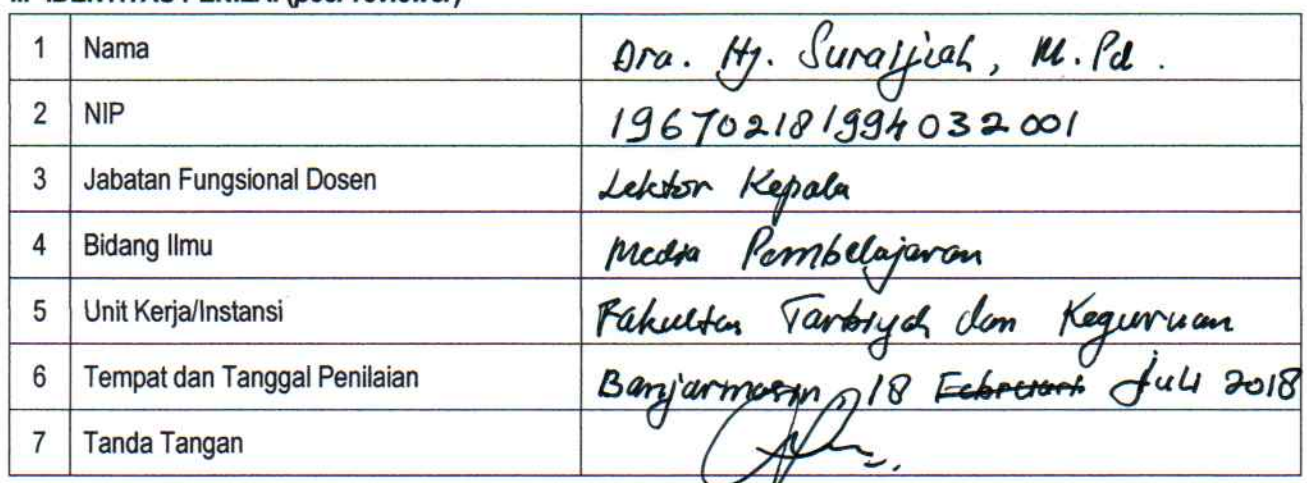 III IDENTITAS PENILAI (peer reviewer)
1 Nama Dra. Hj. Suraijiah, M.Pd.
2 NIP 196702181994032001
3 Jabatan Fungsional Dosen Lektor Kepala
4 Bidang Ilmu Media Pembelajaran
5 Unit Kerja/Instansi Fakultas Tarbiyah dan Keguruan
6 Tempat dan Tanggal Penilaian Banjarmasin, 18 Februari Juli 2018
7 Tanda Tangan